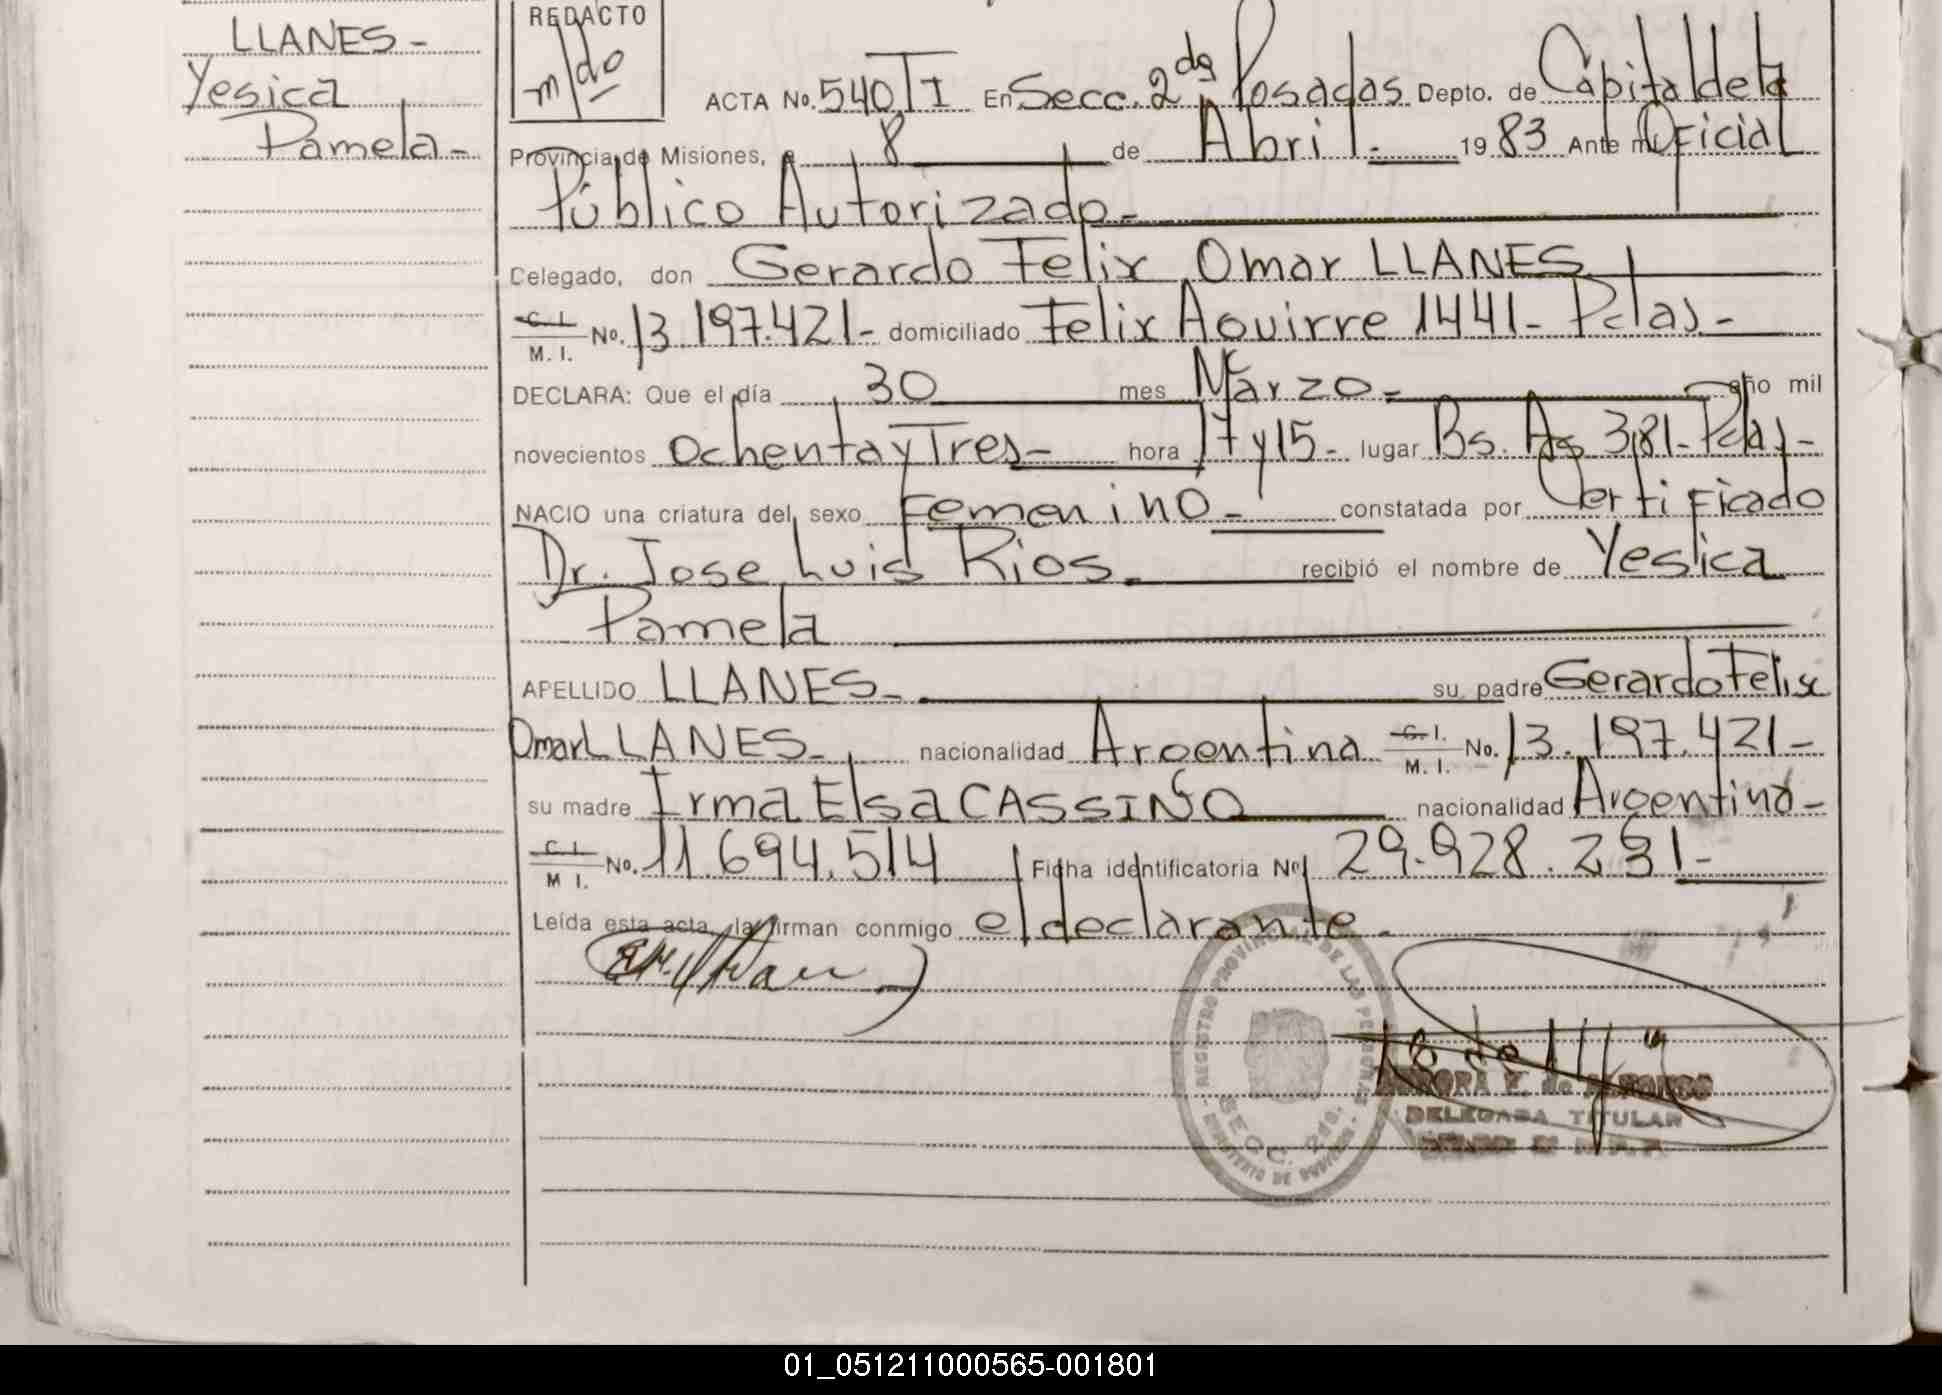 LLANES-
Yesica
Pamela-
REDACTO
ACTA No. 540 T I En Secc. 2da Posadas Depto. de Capital de la
Provincia de Misiones, a 8 de Abril- 1983 Ante mi Oficial
Público Autorizado-
Celegado, don Gerardo Felix Omar LLANES
C.I. M.I. No. 13.197.421- domiciliado Felix Aguirre 1441- Pdas-
DECLARA: Que el día 30 mes Marzo- año mil
novecientos ochenta y Tres- hora 17 y 15- lugar Bs. As 381- Pdas-
NACIO una criatura del sexo Femenino- constatada por Certificado
Dr. Jose Luis Rios. recibió el nombre de Yesica
Pamela
APELLIDO LLANES- su padre Gerardo Felix
Omar LLANES- nacionalidad Argentina C.I. M.I. No. 13.197.421-
su madre Irma Elsa CASSIÑO nacionalidad Argentina-
C.I. M I. No. 11.694.514 Ficha identificatoria Nº 29.928.291-
Leída esta acta, la firman conmigo el declarante.
REGISTRO PROVINCIAL DE LAS PERSONAS
SECC. 2da.
MINISTERIO DE GOBIERNO
DELEGADA TITULAR
01_051211000565-001801